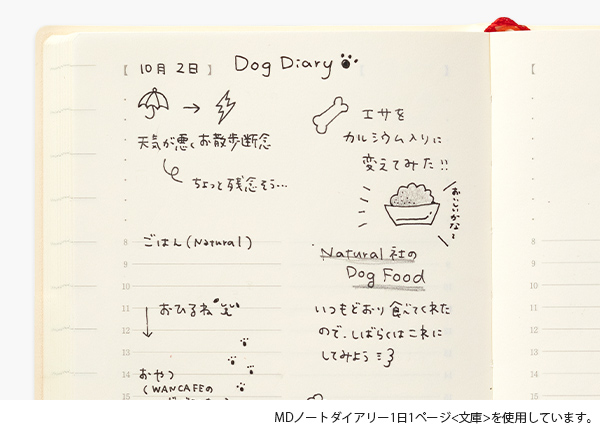 【 10月 2日 】 Dog Diary
天気が悪くお散歩断念
ちょっと残念そう…
エサを
カルシウム入りに
変えてみた!!
おいしいかな〜
8 ごはん(Natural)
9
10
11 おひるね
12
13
14 おやつ
15 (WANCAFEの
Natural 社の
Dog Food
いつもどおり食べてくれた
ので、しばらくはこれに
してみよう
【
MDノートダイアリー1日1ページ<文庫>を使用しています。